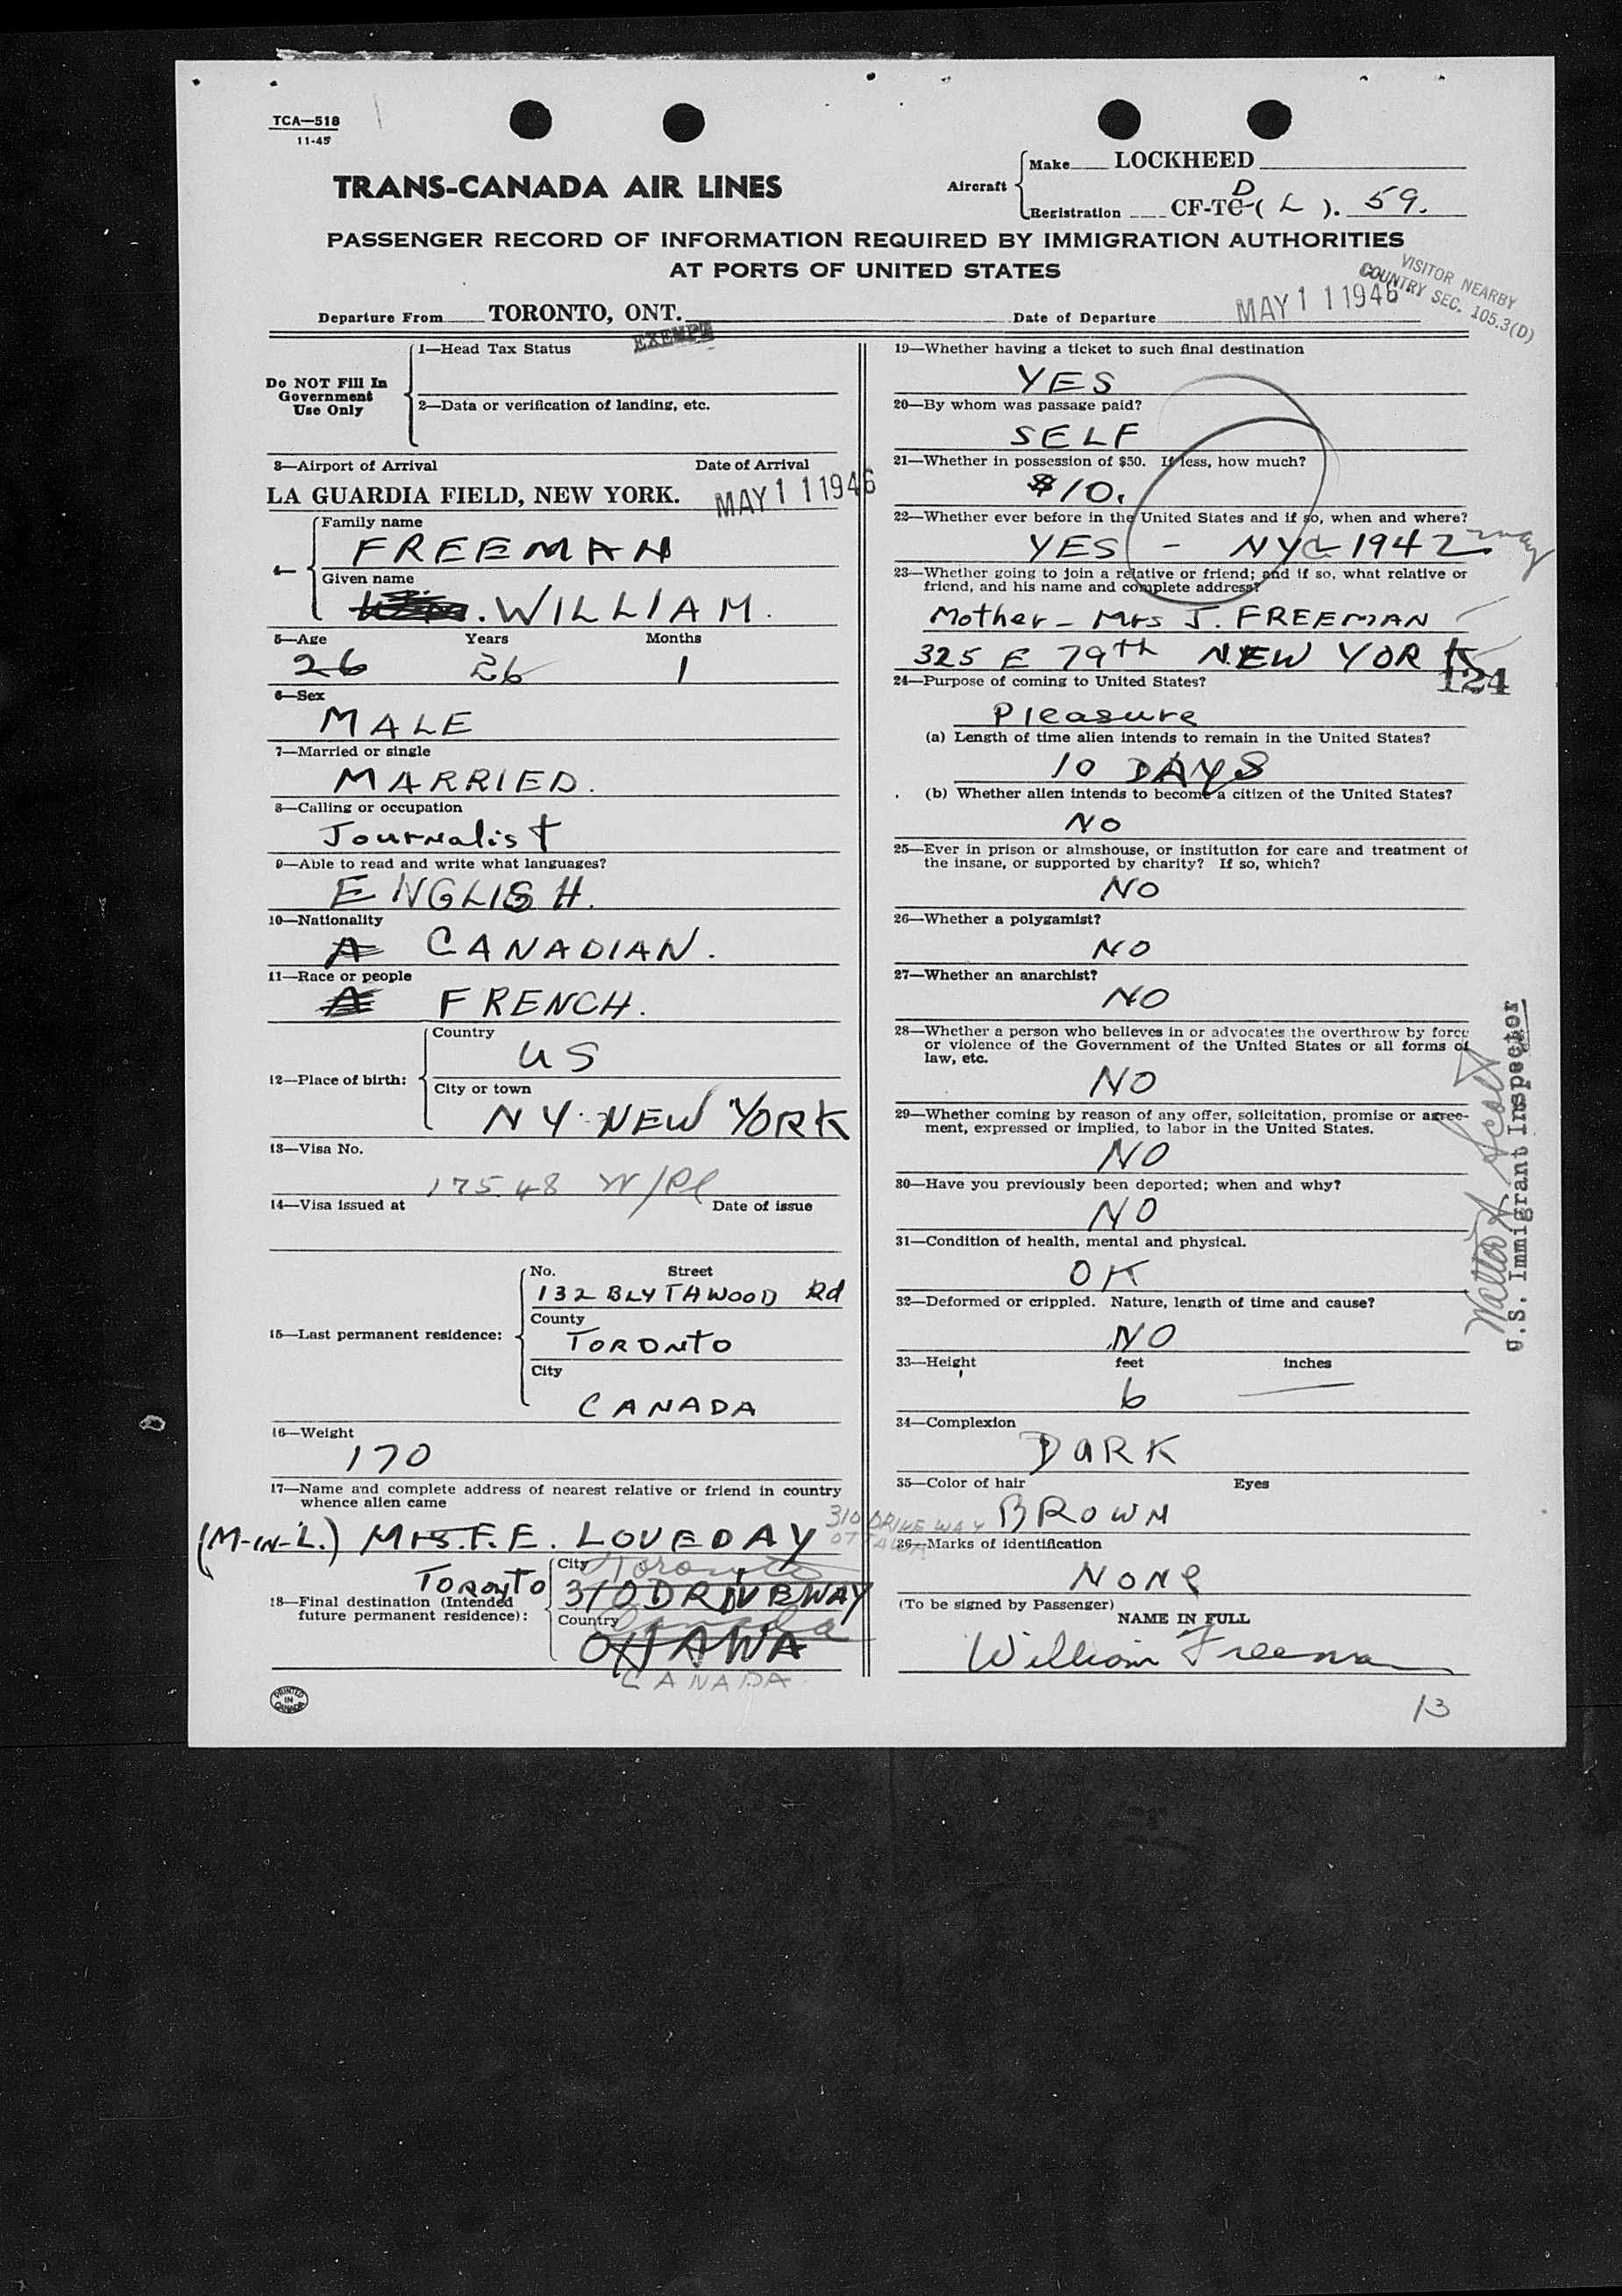 TCA—518
11-45
TRANS-CANADA AIR LINES
Aircraft
Make LOCKHEED
D
Registration CF-TC-( L ). 59.
PASSENGER RECORD OF INFORMATION REQUIRED BY IMMIGRATION AUTHORITIES
AT PORTS OF UNITED STATES
VISITOR NEARBY
COUNTRY SEC. 105.3(D)
Departure From TORONTO, ONT. Date of Departure MAY 11 1946
EXEMPT
Do NOT Fill In
Government
Use Only
1—Head Tax Status
2—Data or verification of landing, etc.
3—Airport of Arrival Date of Arrival
LA GUARDIA FIELD, NEW YORK. MAY 11 1946
4—
Family name
FREEMAN
Given name
WILLIAM.
5—Age Years Months
26 26 1
6—Sex
MALE
7—Married or single
MARRIED.
8—Calling or occupation
Journalist
9—Able to read and write what languages?
ENGLISH.
10—Nationality
A CANADIAN.
11—Race or people
A FRENCH.
12—Place of birth:
Country
US
City or town
NY. NEW YORK
13—Visa No.
175.48 W/Pl
14—Visa issued at Date of issue
15—Last permanent residence:
No. Street
132 BLYTHWOOD Rd
County
TORONTO
City
CANADA
16—Weight
170
17—Name and complete address of nearest relative or friend in country
whence alien came
(M-IN-L.) Mrs. F. E. LOVEDAY 310 DRIVEWAY
OTTAWA
18—Final destination (Intended
future permanent residence):
TORONTO
City Toronto
310 DRIVEWAY
Country Canada
OTTAWA
CANADA
PRINTED
IN
CANADA
19—Whether having a ticket to such final destination
YES
20—By whom was passage paid?
SELF
21—Whether in possession of $50. If less, how much?
$10.
22—Whether ever before in the United States and if so, when and where?
YES - NYC 1942 may
23—Whether going to join a relative or friend; and if so, what relative or
friend, and his name and complete address?
Mother - Mrs J. FREEMAN
325 E 79th NEW YORK
124
24—Purpose of coming to United States?
Pleasure
(a) Length of time alien intends to remain in the United States?
10 DAYS
(b) Whether alien intends to become a citizen of the United States?
NO
25—Ever in prison or almshouse, or institution for care and treatment of
the insane, or supported by charity? If so, which?
NO
26—Whether a polygamist?
NO
27—Whether an anarchist?
NO
28—Whether a person who believes in or advocates the overthrow by force
or violence of the Government of the United States or all forms of
law, etc.
NO
29—Whether coming by reason of any offer, solicitation, promise or agree-
ment, expressed or implied, to labor in the United States.
NO
30—Have you previously been deported; when and why?
NO
31—Condition of health, mental and physical.
OK
32—Deformed or crippled. Nature, length of time and cause?
NO
33—Height feet inches
6 —
34—Complexion
DARK
35—Color of hair Eyes
BROWN
36—Marks of identification
NONE
(To be signed by Passenger)
NAME IN FULL
William Freeman
13
Walter A Scott
U.S. Immigrant Inspector